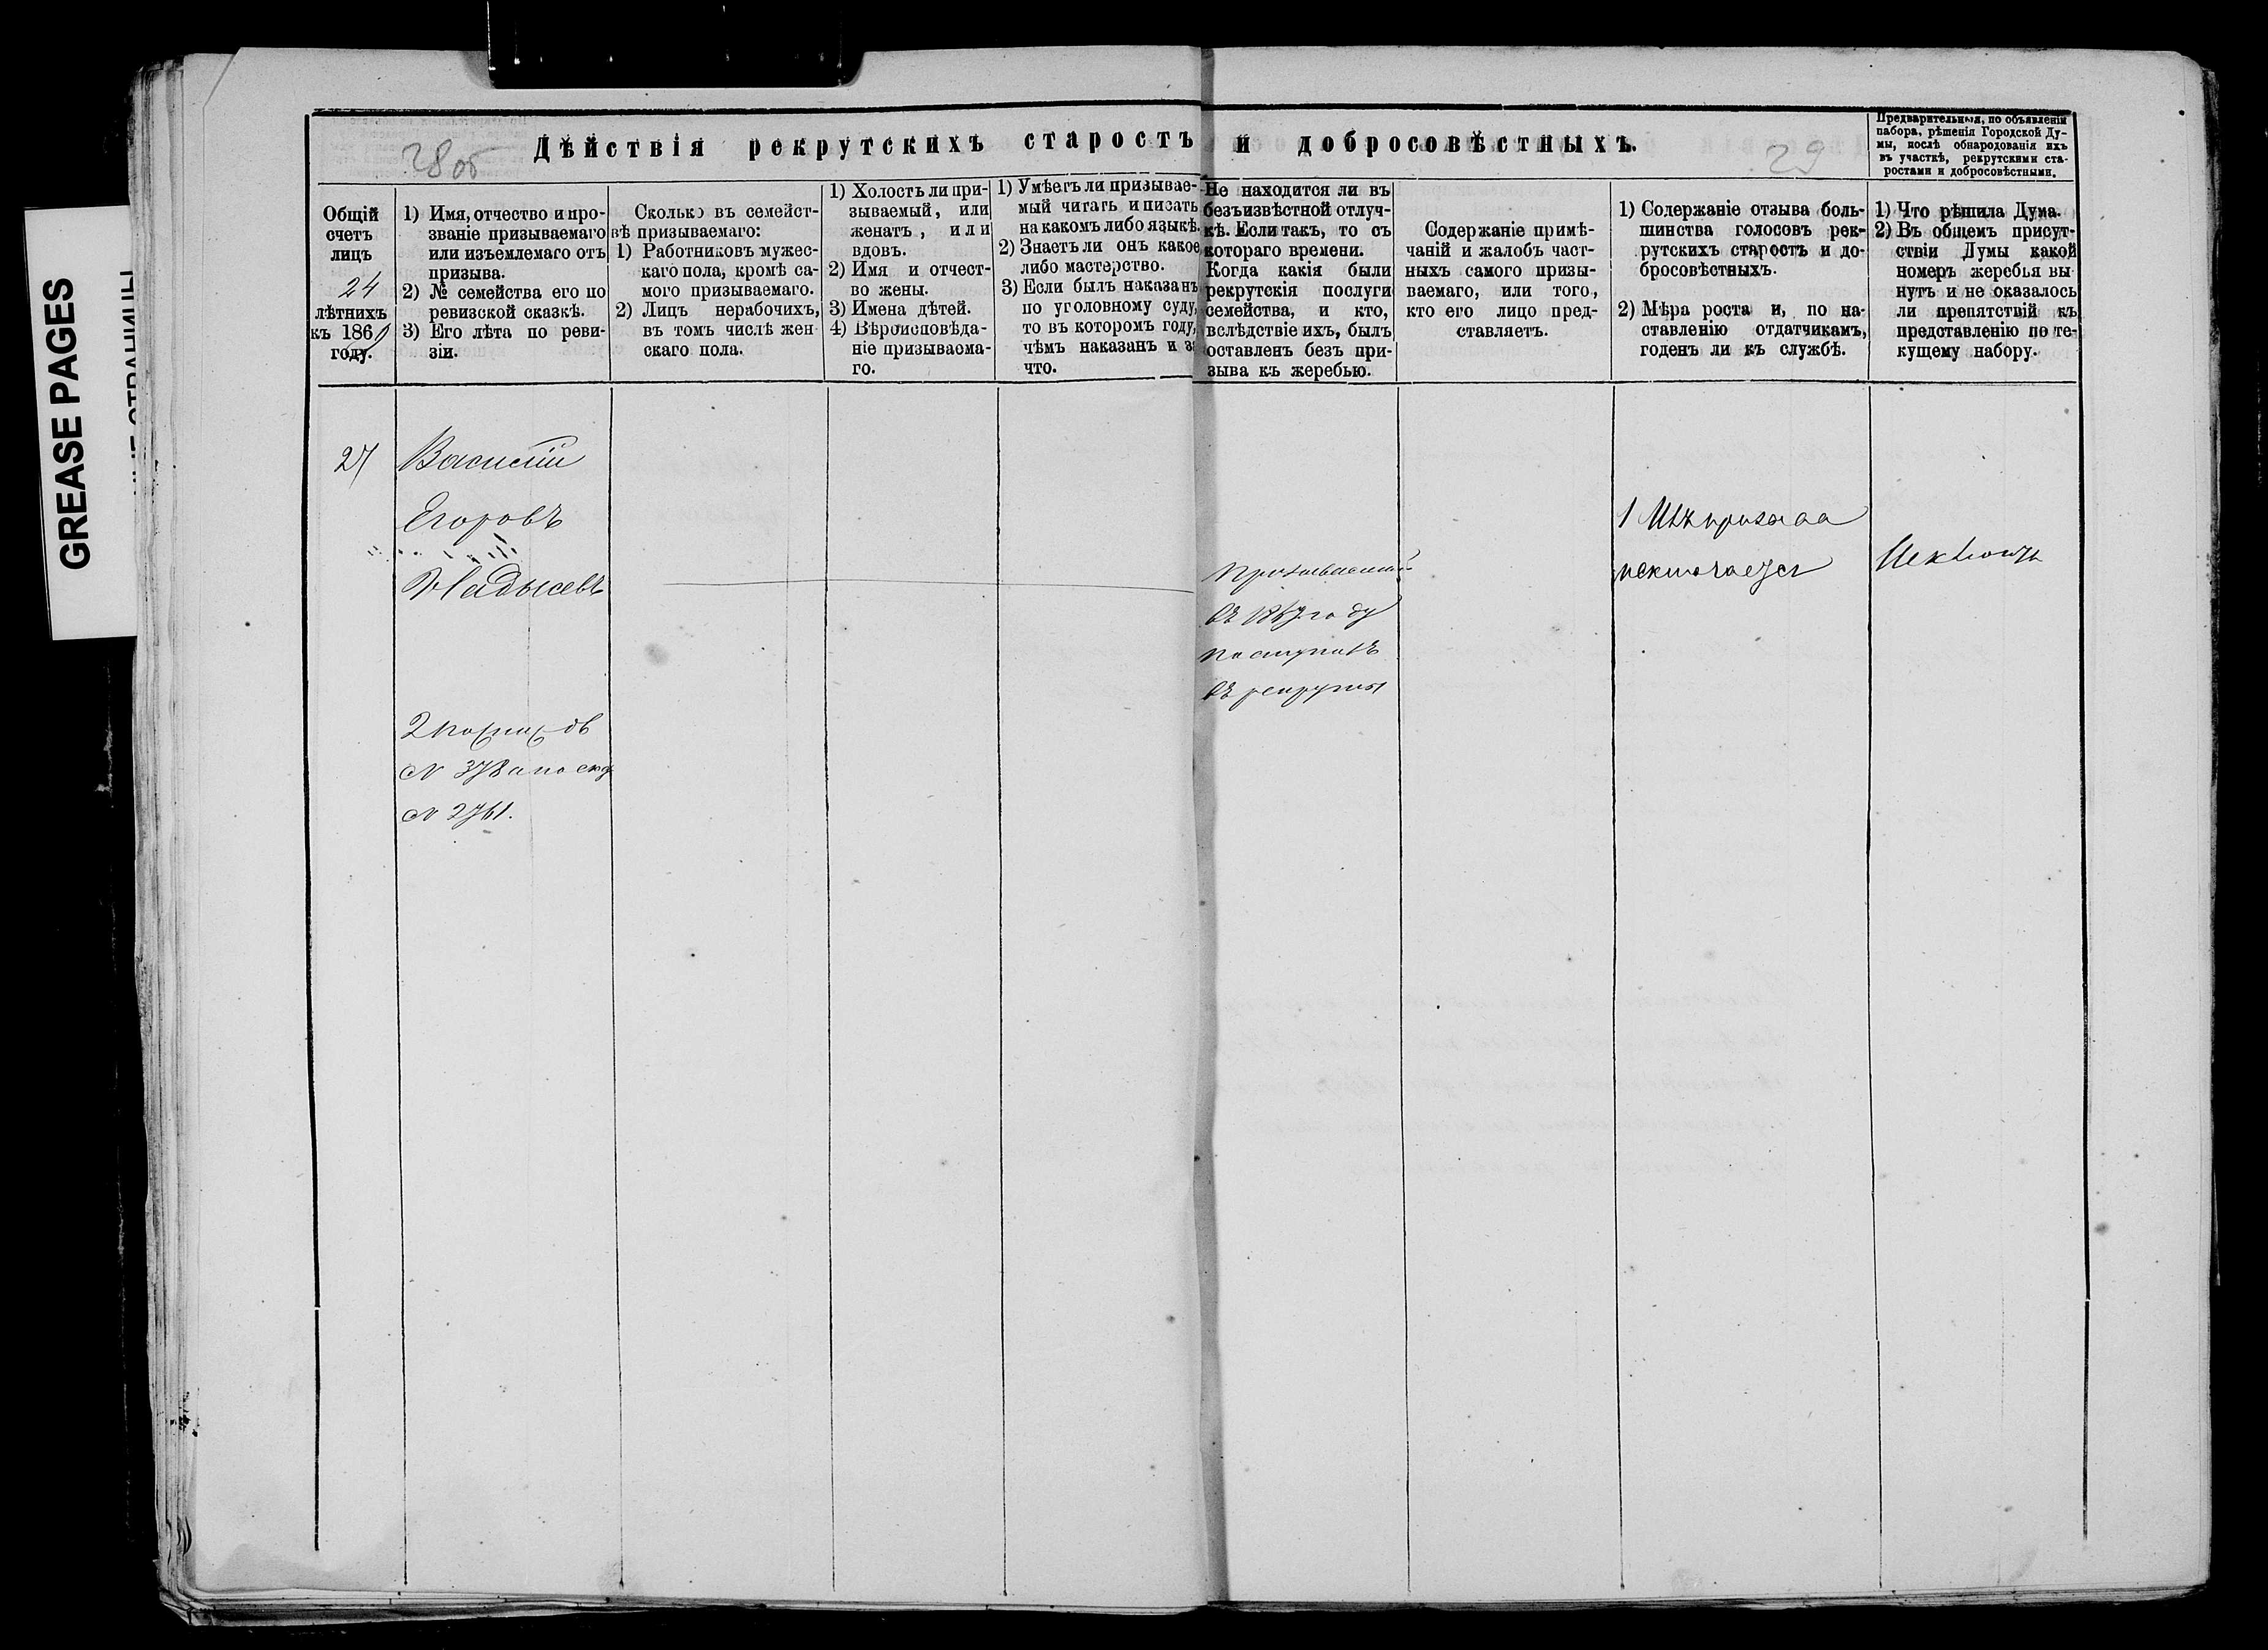 GREASE PAGES
28 об
29
Дѣйствія рекрутскихъ старостъ и добросовѣстныхъ.
Предварительныя, по объявленіи
набора, рѣшенія Городской Ду-
мы, послѣ обнародованія ихъ
въ участкѣ, рекрутскими ста-
ростами и добросовѣстными.
Общій
счетъ
лицъ
24
лѣтнихъ
къ 1869
году.
1) Имя, отчество и про-
званіе призываемаго
или изъемлемаго отъ
призыва.
2) № семейства его по
ревизской сказкѣ.
3) Его лѣта по реви-
зіи.
Сколько въ семейст-
вѣ призываемаго:
1) Работниковъ мужес-
каго пола, кромѣ са-
мого призываемаго.
2) Лицъ нерабочихъ,
въ томъ числѣ жен
скаго пола.
1) Холостъ ли при-
зываемый, или
женатъ, или
вдовъ.
2) Имя и отчест-
во жены.
3) Имена дѣтей.
4) Вѣроисповѣда-
ніе призываема-
го.
1) Умѣетъ ли призывае-
мый читать и писать
на какомъ либо языкѣ.
2) Знаетъ ли онъ какое
либо мастерство.
3) Если былъ наказанъ
по уголовному суду,
то въ которомъ году,
чѣмъ наказанъ и за
что.
Не находится ли въ
безъизвѣстной отлуч-
кѣ. Если такъ, то съ
котораго времени.
Когда какія были
рекрутскія послуги
семейства, и кто,
вслѣдствіе ихъ, былъ
оставленъ безъ при-
зыва къ жеребью.
Содержаніе примѣ-
чаній и жалобъ част-
ныхъ самого призы-
ваемаго, или того,
кто его лицо пред-
ставляетъ.
1) Содержаніе отзыва боль-
шинства голосовъ рек-
рутскихъ старостъ и до-
бросовѣстныхъ.
2) Мѣра роста и, по на-
ставленію отдатчикамъ,
годенъ ли къ службѣ.
1) Что рѣшила Дума.
2) Въ общемъ присут-
ствіи Думы какой
номеръ жеребья вы
нутъ и не оказалось
ли препятствій къ
представленію по те-
кущему набору.
27
Василій
Егоровъ
2
N 378 а по скд
N 2761.
Призываемый
въ 1867 году
поступилъ
въ рекруты
1 Изъ призыва
исключается
Исключ